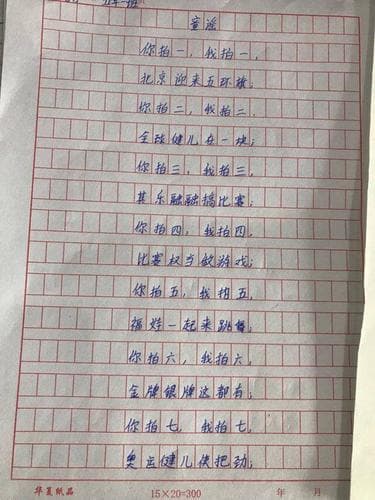 童谣
你拍一，我拍一，
北京迎来五环旗，
你拍二，我拍二，
全球健儿在一块；
你拍三，我拍三，
其乐融融搞比赛；
你拍四，我拍四，
比赛权当做游戏；
你拍五，我拍五，
福娃一起来跳舞；
你拍六，我拍六，
金牌银牌这都有；
你拍七，我拍七，
奥运健儿快把劲；
华夏纸品 15×20=300 年 月